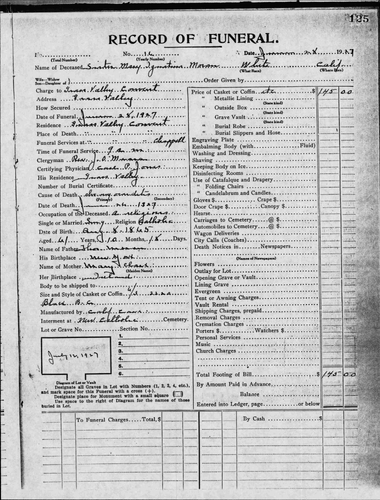 135
RECORD OF FUNERAL.
No. 12 Date 28 1927
(Total Number) (Yearly Number)
Name of Deceased Sister Mary Ignatius Moran White Calif
(What Race) (Where Born)
Wife—Widow
Son—Daughter of Order Given by
Charge to Grass Valley Convent
Address Grass Valley
How Secured
Date of Funeral 28, 1927
Place of Death Grass Valley Convent
Funeral Services at Chappell
Time of Funeral Service 9 a m
Clergyman Rev.
Certifying Physician Jones
His Residence Grass Valley
Number of Burial Certificate
Cause of Death
(Primary) (Secondary)
Date of Death 26 1927
Occupation of the Deceased
Single or Married Religion Catholic
Date of Birth Aug 8 1865
Aged 61 Years, 10 Months, 18 Days
Name of Father Moran
His Birthplace New York
Name of Mother Mary
(Maiden Name)
Her Birthplace
Body to be shipped to
Size and Style of Casket or Coffin 6/3
Black B.C.
Manufactured by Calif
Interment at New Catholic Cemetery
Lot or Grave No. Section No.
1.
2.
3.
4.
5.
6.
July 12, 1927
Diagram of Lot or Vault
Designate all Graves in Lot with Numbers (1, 2, 3, 4, etc.), and mark space for this Funeral with a cross (+).
Designate place for Monument with a small square
Use space to the right of Diagram for the names of those buried in Lot.
Price of Casket or Coffin etc $ 145 00
" Metallic Lining
(State kind)
" Outside Box
(State kind)
" Grave Vault
(State kind)
" Burial Robe
(State kind)
" Burial Slippers and Hose
Engraving Plate
Embalming Body (with Fluid)
Washing and Dressing
Shaving
Keeping Body on Ice
Disinfecting Rooms
Use of Catafalque and Drapery
" Folding Chairs
" Candelabrum and Candles
Gloves
Door Crape
Hearse
Carriages to Cemetery @ $
Automobiles to Cemetery @ $
Wagon Deliveries
City Calls (Coaches)
Death Notices in Newspapers
(Names of Newspapers)
Flowers
Outlay for Lot
Opening Grave or Vault
Lining Grave
Evergreen
Tent or Awning Charges
Vault Rental
Shipping Charges, prepaid
Removal Charges
Cremation Charges
Porters $ Watchers $
Personal Services
Music
Church Charges
Total Footing of Bill $ 145 00
By Amount Paid in Advance
Balance
Entered into Ledger, page or below.
To Funeral Charges, Total $ By Cash $